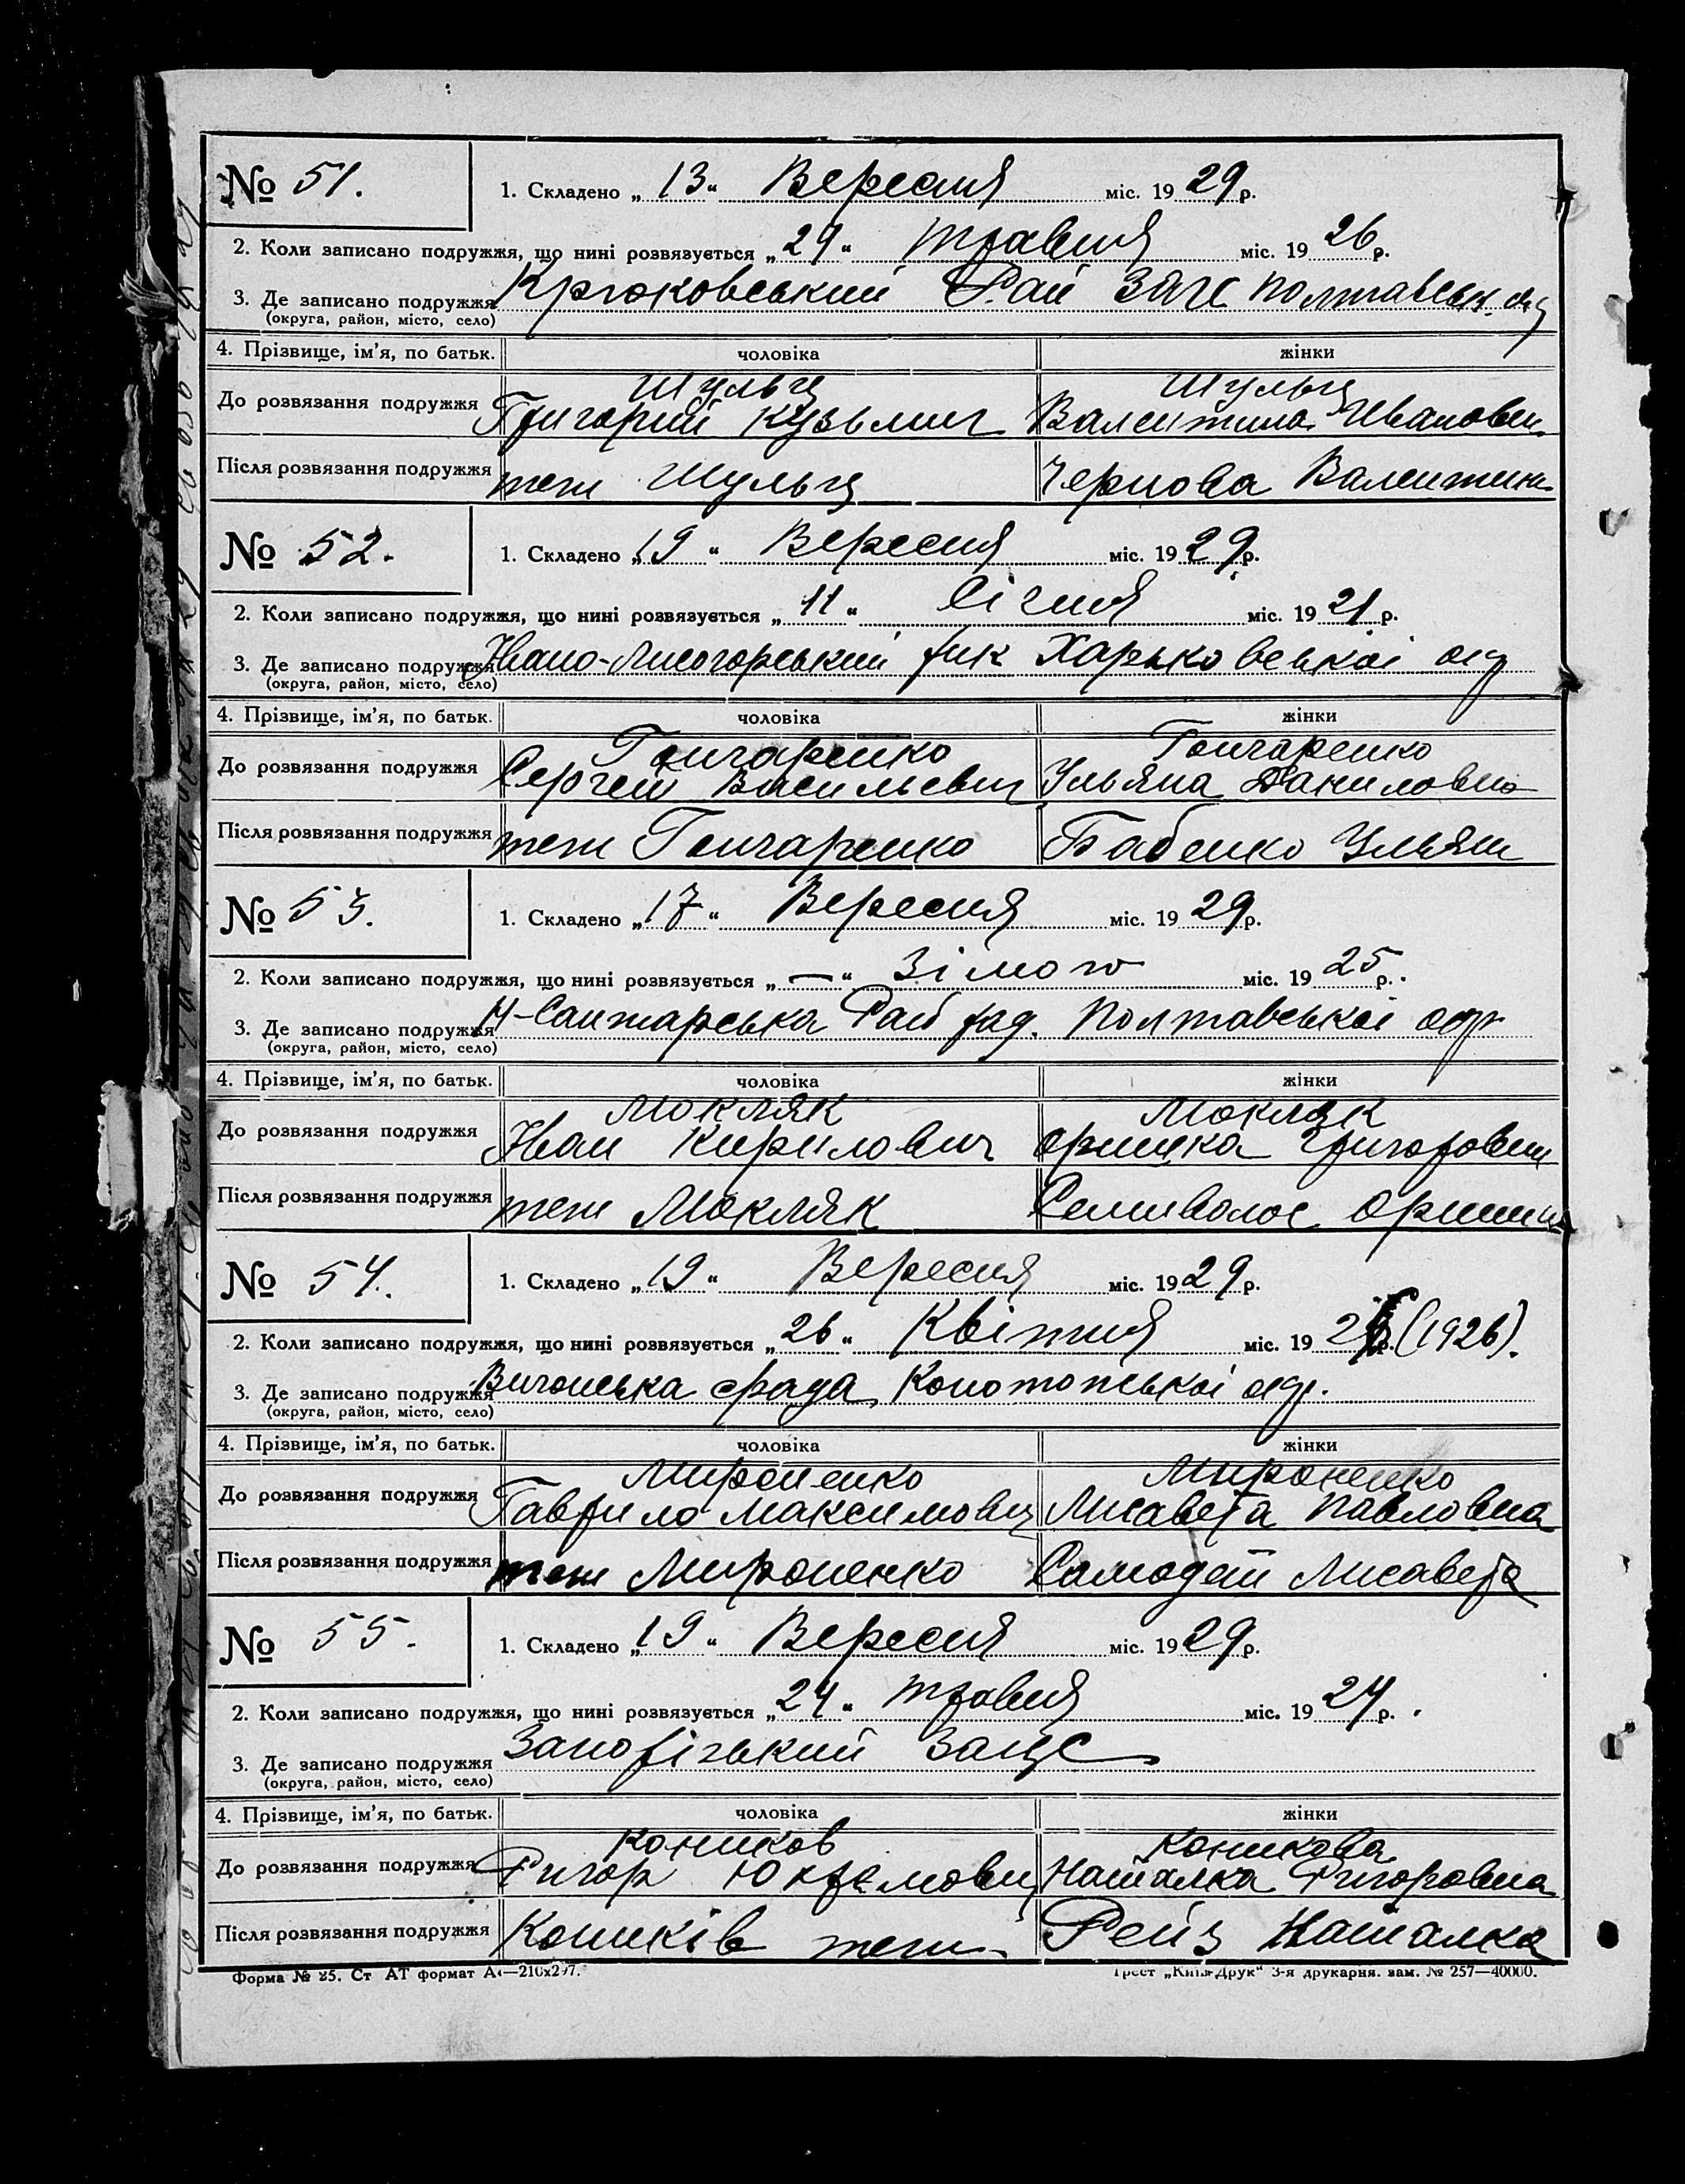 № 51. 1. Складено „13“ Вересня міс. 1929 р.
2. Коли записано подружжя, що нині розвязується „29“ травня міс. 1926 р.
3. Де записано подружжя Крюковський Рай ЗАГС Полтавськ. окр
(округа, район, місто, село)
4. Прізвище, ім’я, по батьк. чоловіка жінки
Шульц Шульц
До розвязання подружжя Григорий Кузьмич Валентина Ивановн.
Після розвязання подружжя теж Шульц Чернова Валентина
№ 52. 1. Складено „19“ Вересня міс. 1929 р.
2. Коли записано подружжя, що нині розвязується „11“ Січня міс. 1921 р.
3. Де записано подружжя Ивано-Лисогорський рик Харьковськоі окр
(округа, район, місто, село)
4. Прізвище, ім’я, по батьк. чоловіка жінки
Гончаренко Гончаренко
До розвязання подружжя Сергей Васильевич Ульяна Даниловна
Після розвязання подружжя теж Гончаренко Бабенко Ульяна
№ 53. 1. Складено „17“ Вересня міс. 1929 р.
2. Коли записано подружжя, що нині розвязується „—“ Зімою міс. 1925 р.
3. Де записано подружжя Н-Санжарська Рай рад. Полтавськоі окр
(округа, район, місто, село)
4. Прізвище, ім’я, по батьк. чоловіка жінки
Мокляк Мокляк
До розвязання подружжя Иван Кирилович Оришка Григоровна
Після розвязання подружжя теж Мокляк Семиволос Оришка
№ 54. 1. Складено „19“ Вересня міс. 1929 р.
2. Коли записано подружжя, що нині розвязується „26“ Квітня міс. 1926 р. (1926).
3. Де записано подружжя срада, Конотопськоі окр.
(округа, район, місто, село)
4. Прізвище, ім’я, по батьк. чоловіка жінки
Мироненко Мироненко
До розвязання подружжя Гаврило Максимович Лисавета Павловна
Після розвязання подружжя теж Мироненко Самодей Лисавета
№ 55. 1. Складено „19“ Вересня міс. 1929 р.
2. Коли записано подружжя, що нині розвязується „24“ травня міс. 1924 р.
3. Де записано подружжя Запорізький Загс
(округа, район, місто, село)
4. Прізвище, ім’я, по батьк. чоловіка жінки
Коников Коникова
До розвязання подружжя Ригор Юхремович Наталка Ригоровна
Після розвязання подружжя Коників теж Рейз Наталка
Форма № 25. Ст АТ формат А4—210х297. Трест „Київ-Друк“ 3-я друкарня. зам. № 257—40000.